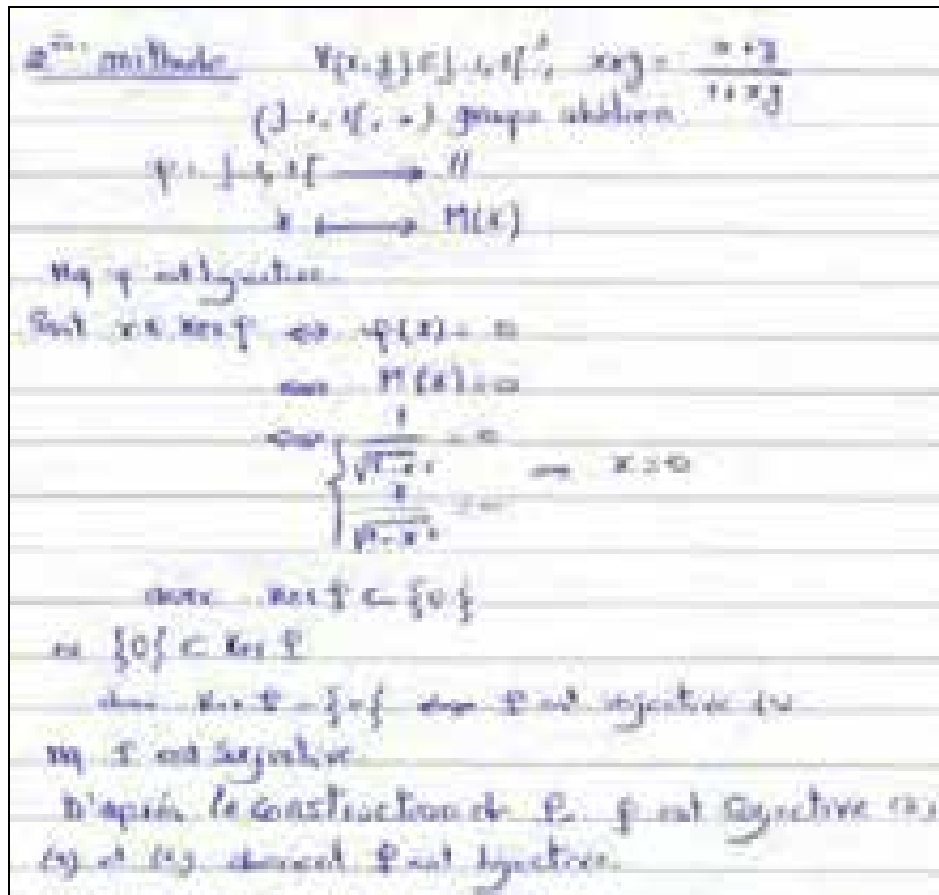 2ème méthode ∀(x,y) ∈ ]-1,1[², x*y = (x+y)/(1+xy)
(]-1,1[, *) groupe abélien
φ : ]-1,1[ → 
x ↦ M(x)
Mq φ est bijective
Soit x ∈ Ker φ ⇔ φ(x) = 0
⇔ M(x) = 0
⇔ { 1/√(1-x²) = 0
x/√(1-x²) = 0 ⇒ x = 0
donc Ker φ ⊂ {0}
{0} ⊂ Ker φ
donc Ker φ = {0} φ est injective (1)
Mq φ est surjective
D'après la construction de φ, φ est surjective (2)
(1) et (2) donnent φ est bijective.